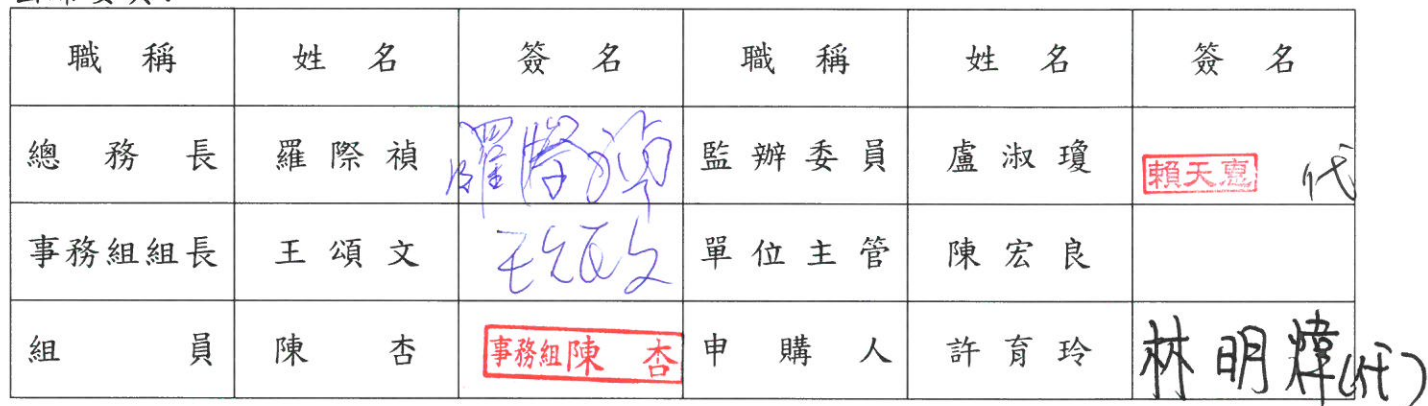 職稱 姓名 簽名 職稱 姓名 簽名
總務長 羅際禎 羅際禎 監辦委員 盧淑瓊 賴天惠 代
事務組組長 王頌文 單位主管 陳宏良
組員 陳杏 事務組陳杏 申購人 許育玲 林明煒(代)